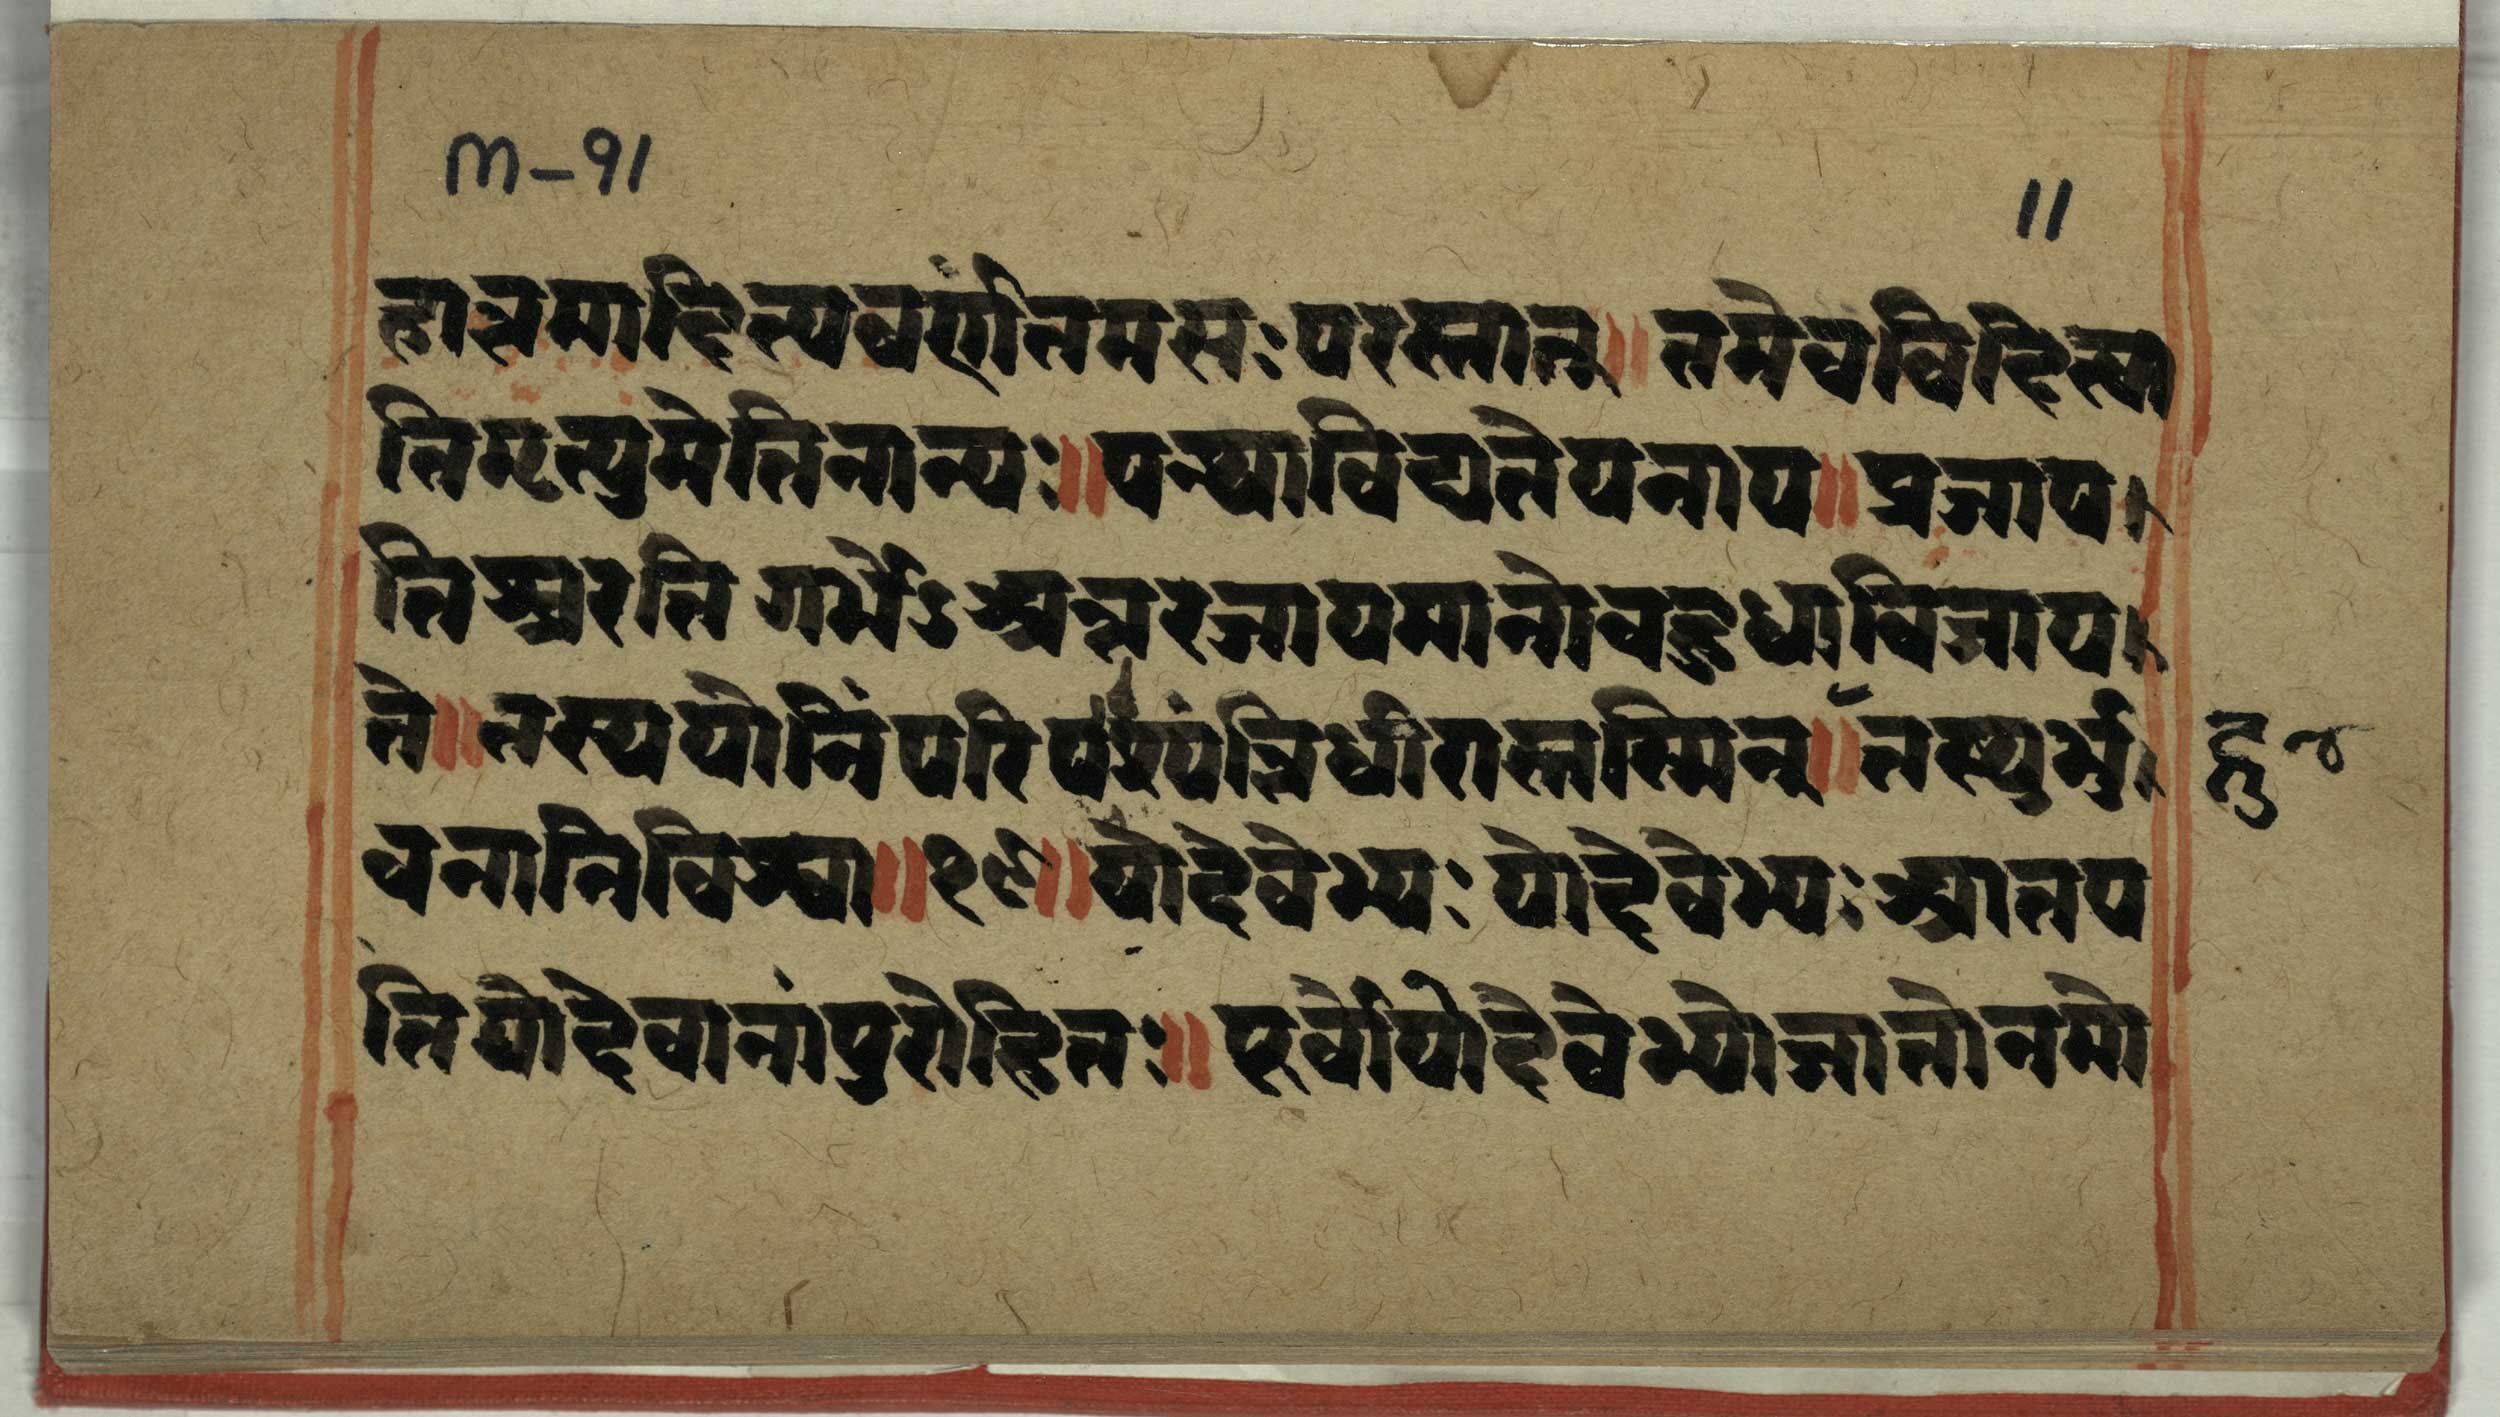 M-91
11
हान्तमादित्यवर्णंतमसः परस्तात् ॥ तमेवविदित्वा
तिमृत्युमेतिनान्यः ॥ पन्थाविद्यतेयनाय ॥ प्रजाप।
तिश्चरति गर्भेऽ अन्तरजायमानोबहुधाविजाय।
ते ॥ तस्ययोनिं परि पश्यंन्तिधीरास्तस्मिन् ॥ तस्थुर्भु।
वनानिविश्वा ॥ १९ ॥ योदेवेभ्यः योदेवेभ्यः आतप
तियोदेवानांपुरोहितः ॥ पूर्वोयोदेवेभ्योजातोनमो